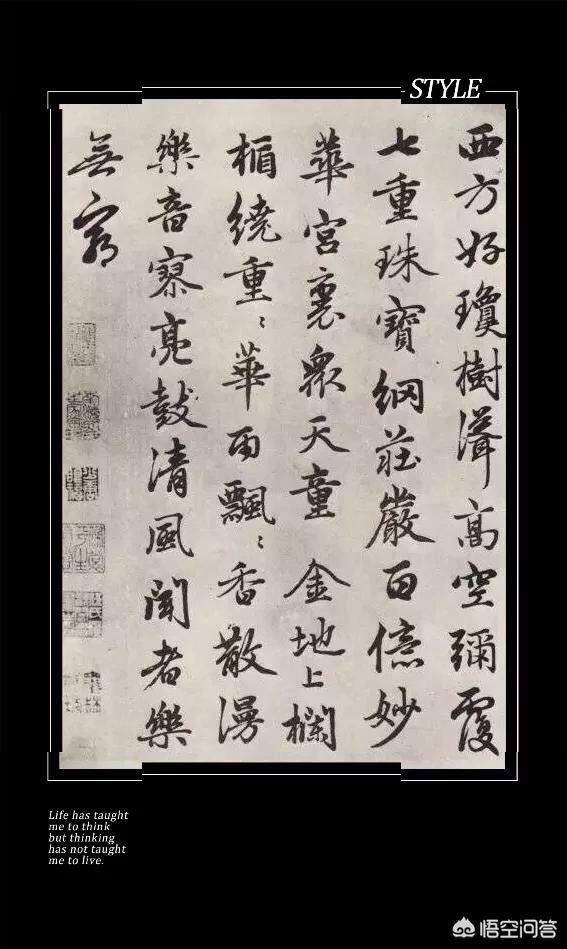 STYLE
西方好瓊樹聳高空彌覆
七重珠寶網莊嚴百億妙
華宮裏衆天童 金地上欄
楯繞重〻華雨飄〻香散漫
樂音寥亮鼓清風聞者樂
無窮
Life has taught
me to think
but thinking
has not taught
me to live.
悟空问答